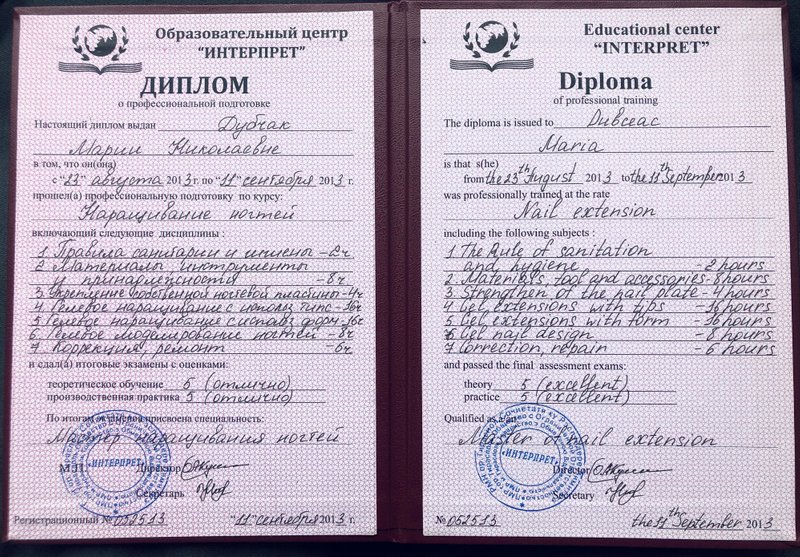 Образовательный центр
"ИНТЕРПРЕТ"
ДИПЛОМ
о профессиональной подготовке
Настоящий диплом выдан Дубчак
Марии Николаевне
в том, что он(она)
с "23" августа 2013 г. по "11" сентября 2013 г.
прошел(а) профессиональную подготовку по курсу:
Наращивание ногтей
включающий следующие дисциплины :
1 Правила санитарии и гигиены - 2ч
2 Материалы инструменты
и принадлежности - 8ч
3 Укрепление собственной ногтевой пластины - 4ч
4 Гелевое наращивание с использ типс - 36ч
5 Гелевое наращивание с использ форм - 36ч
6. Гелевое моделирование ногтей - 8ч
7 Коррекция, ремонт - 6ч
и сдал(а) итоговые экзамены с оценками:
теоретическое обучение 5 (отлично)
производственная практика 5 (отлично)
По итогам экзаменов присвоена специальность:
Мастер наращивания ногтей
"ИНТЕРПРЕТ"
М.П. Директор
Секретарь
Регистрационный № 052513 "11" сентября 2013 г.
Educational center
"INTERPRET"
Diploma
of professional training
The diploma is issued to Duvceac
Maria
is that s(he)
from the 23th August 2013 to the 11th September 2013
was professionally trained at the rate
Nail extension
including the following subjects :
1 The Rule of sanitation
and hygiene - 2 hours
2. Materials, tool and accessories - 8 hours
3 Strengthen of the nail plate - 4 hours
4 Gel extensions with tips - 36 hours
5 Gel extensions with form - 36 hours
6 Gel nail design - 8 hours
7 Correction, repair - 6 hours
and passed the final assessment exams:
theory 5 (excellent)
practice 5 (excellent)
Qualified as a
Master of nail extension
"ИНТЕРПРЕТ"
Director
Secretary
№ 052513 the 11th September 2013